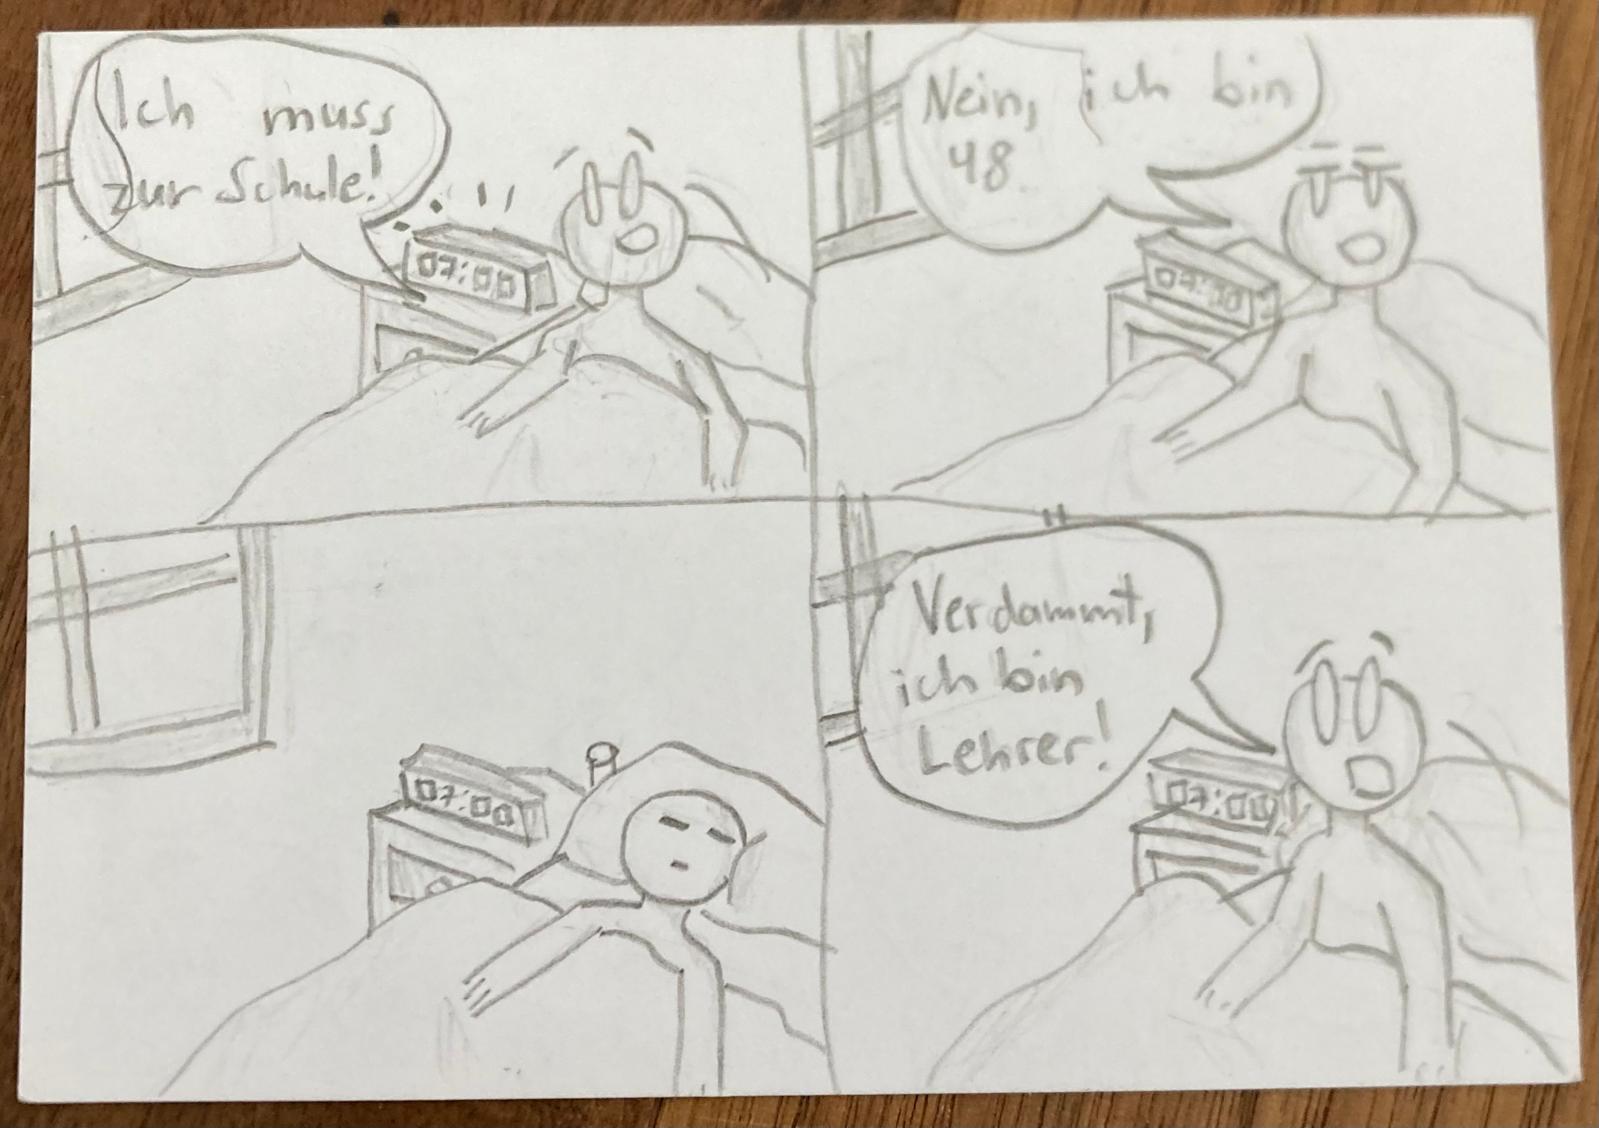 Ich muss
zur Schule!
07:00
Nein, ich bin
48.
07:00
07:00
Verdammt,
ich bin
Lehrer!
07:00